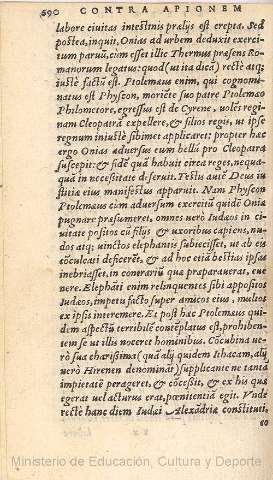 690 CONTRA APIONEM
labore ciuitas intestinis prælijs est erepta. Sed
postea, inquit, Onias ad urbem deduxit exerci-
tum paruū, cum esset illic Thermus præsens Ro-
manorum legatus: quod (ut ita dicā) rectè atq;
iustè factū est. Ptolemæus enim, qui cognomi-
natus est Physcon, moriēte suo patre Ptolemæo
Philometore, egressus est de Cyrene, volēs regi-
nam Cleopatrā expellere, & filios regis, ut ipse
regnum iniustè sibimet applicaret: propter hæc
ergo Onias aduersus eum bellū pro Cleopatra
suscepit: & fidē quā habuit circa reges, nequa-
quā in necessitate deseruit. Testis autē Deus iu-
stitiæ eius manifestus apparuit. Nam Physcon
Ptolemæus cùm aduersum exercitū quidē Onia
pugnare præsumeret, omnes uerò Iudæos in ci-
uitate positos cū filijs & uxoribus capiens, nu-
dos atq; uinctos elephantis subiecisset, ut ab eis
cōculcati deficerēt, & ad hoc etiā bestias ipsas
inebriasset, in contrariū quæ præparauerat, eue
nere. Elephāti enim relinquentes sibi appositos
Iudæos, impetu facto super amicos eius, multos
ex ipsis interemere. Et post hæc Ptolemæus qui-
dem aspectū terribilē contēplatus est, prohiben-
tem se ut illis noceret hominibus. Cōcubina ue-
rò sua charissima (quā alij quidem Ithacam, alij
uerò Hirenen denominār) supplicante ne tantā
impietatē perageret, & cōcessit, & ex his quæ
egerat uel acturus erat, pœnitentiā egit. Vnde
rectè hanc diem Iudæi Alexādriæ constituti,
eo
Ministerio de Educación, Cultura y Deporte